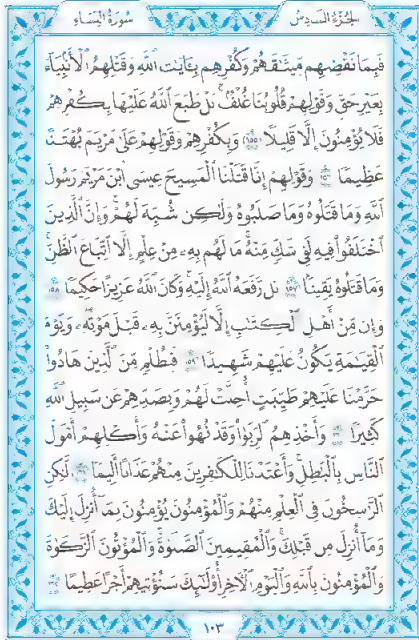 الجزء السادس سورة النساء
فَبِمَا نَقْضِهِم مِّيثَٰقَهُمْ وَكُفْرِهِم بِـَٔايَٰتِ ٱللَّهِ وَقَتْلِهِمُ ٱلْأَنۢبِيَآءَ
بِغَيْرِ حَقٍّ وَقَوْلِهِمْ قُلُوبُنَا غُلْفٌۢ ۚ بَلْ طَبَعَ ٱللَّهُ عَلَيْهَا بِكُفْرِهِمْ
فَلَا يُؤْمِنُونَ إِلَّا قَلِيلًا ١٥٥ وَبِكُفْرِهِمْ وَقَوْلِهِمْ عَلَىٰ مَرْيَمَ بُهْتَٰنًا
عَظِيمًا ١٥٦ وَقَوْلِهِمْ إِنَّا قَتَلْنَا ٱلْمَسِيحَ عِيسَى ٱبْنَ مَرْيَمَ رَسُولَ
ٱللَّهِ وَمَا قَتَلُوهُ وَمَا صَلَبُوهُ وَلَٰكِن شُبِّهَ لَهُمْ ۚ وَإِنَّ ٱلَّذِينَ
ٱخْتَلَفُوا۟ فِيهِ لَفِى شَكٍّ مِّنْهُ ۚ مَا لَهُم بِهِۦ مِنْ عِلْمٍ إِلَّا ٱتِّبَاعَ ٱلظَّنِّ ۚ
وَمَا قَتَلُوهُ يَقِينًۢا ١٥٧ بَل رَّفَعَهُ ٱللَّهُ إِلَيْهِ ۚ وَكَانَ ٱللَّهُ عَزِيزًا حَكِيمًا ١٥٨
وَإِن مِّنْ أَهْلِ ٱلْكِتَٰبِ إِلَّا لَيُؤْمِنَنَّ بِهِۦ قَبْلَ مَوْتِهِۦ ۖ وَيَوْمَ
ٱلْقِيَٰمَةِ يَكُونُ عَلَيْهِمْ شَهِيدًا ١٥٩ فَبِظُلْمٍ مِّنَ ٱلَّذِينَ هَادُوا۟
حَرَّمْنَا عَلَيْهِمْ طَيِّبَٰتٍ أُحِلَّتْ لَهُمْ وَبِصَدِّهِمْ عَن سَبِيلِ ٱللَّهِ
كَثِيرًا ١٦٠ وَأَخْذِهِمُ ٱلرِّبَوٰا۟ وَقَدْ نُهُوا۟ عَنْهُ وَأَكْلِهِمْ أَمْوَٰلَ
ٱلنَّاسِ بِٱلْبَٰطِلِ ۚ وَأَعْتَدْنَا لِلْكَٰفِرِينَ مِنْهُمْ عَذَابًا أَلِيمًا ١٦١ لَّٰكِنِ
ٱلرَّٰسِخُونَ فِى ٱلْعِلْمِ مِنْهُمْ وَٱلْمُؤْمِنُونَ يُؤْمِنُونَ بِمَآ أُنزِلَ إِلَيْكَ
وَمَآ أُنزِلَ مِن قَبْلِكَ ۚ وَٱلْمُقِيمِينَ ٱلصَّلَوٰةَ ۚ وَٱلْمُؤْتُونَ ٱلزَّكَوٰةَ
وَٱلْمُؤْمِنُونَ بِٱللَّهِ وَٱلْيَوْمِ ٱلْءَاخِرِ أُو۟لَٰٓئِكَ سَنُؤْتِيهِمْ أَجْرًا عَظِيمًا ١٦٢
١٠٣